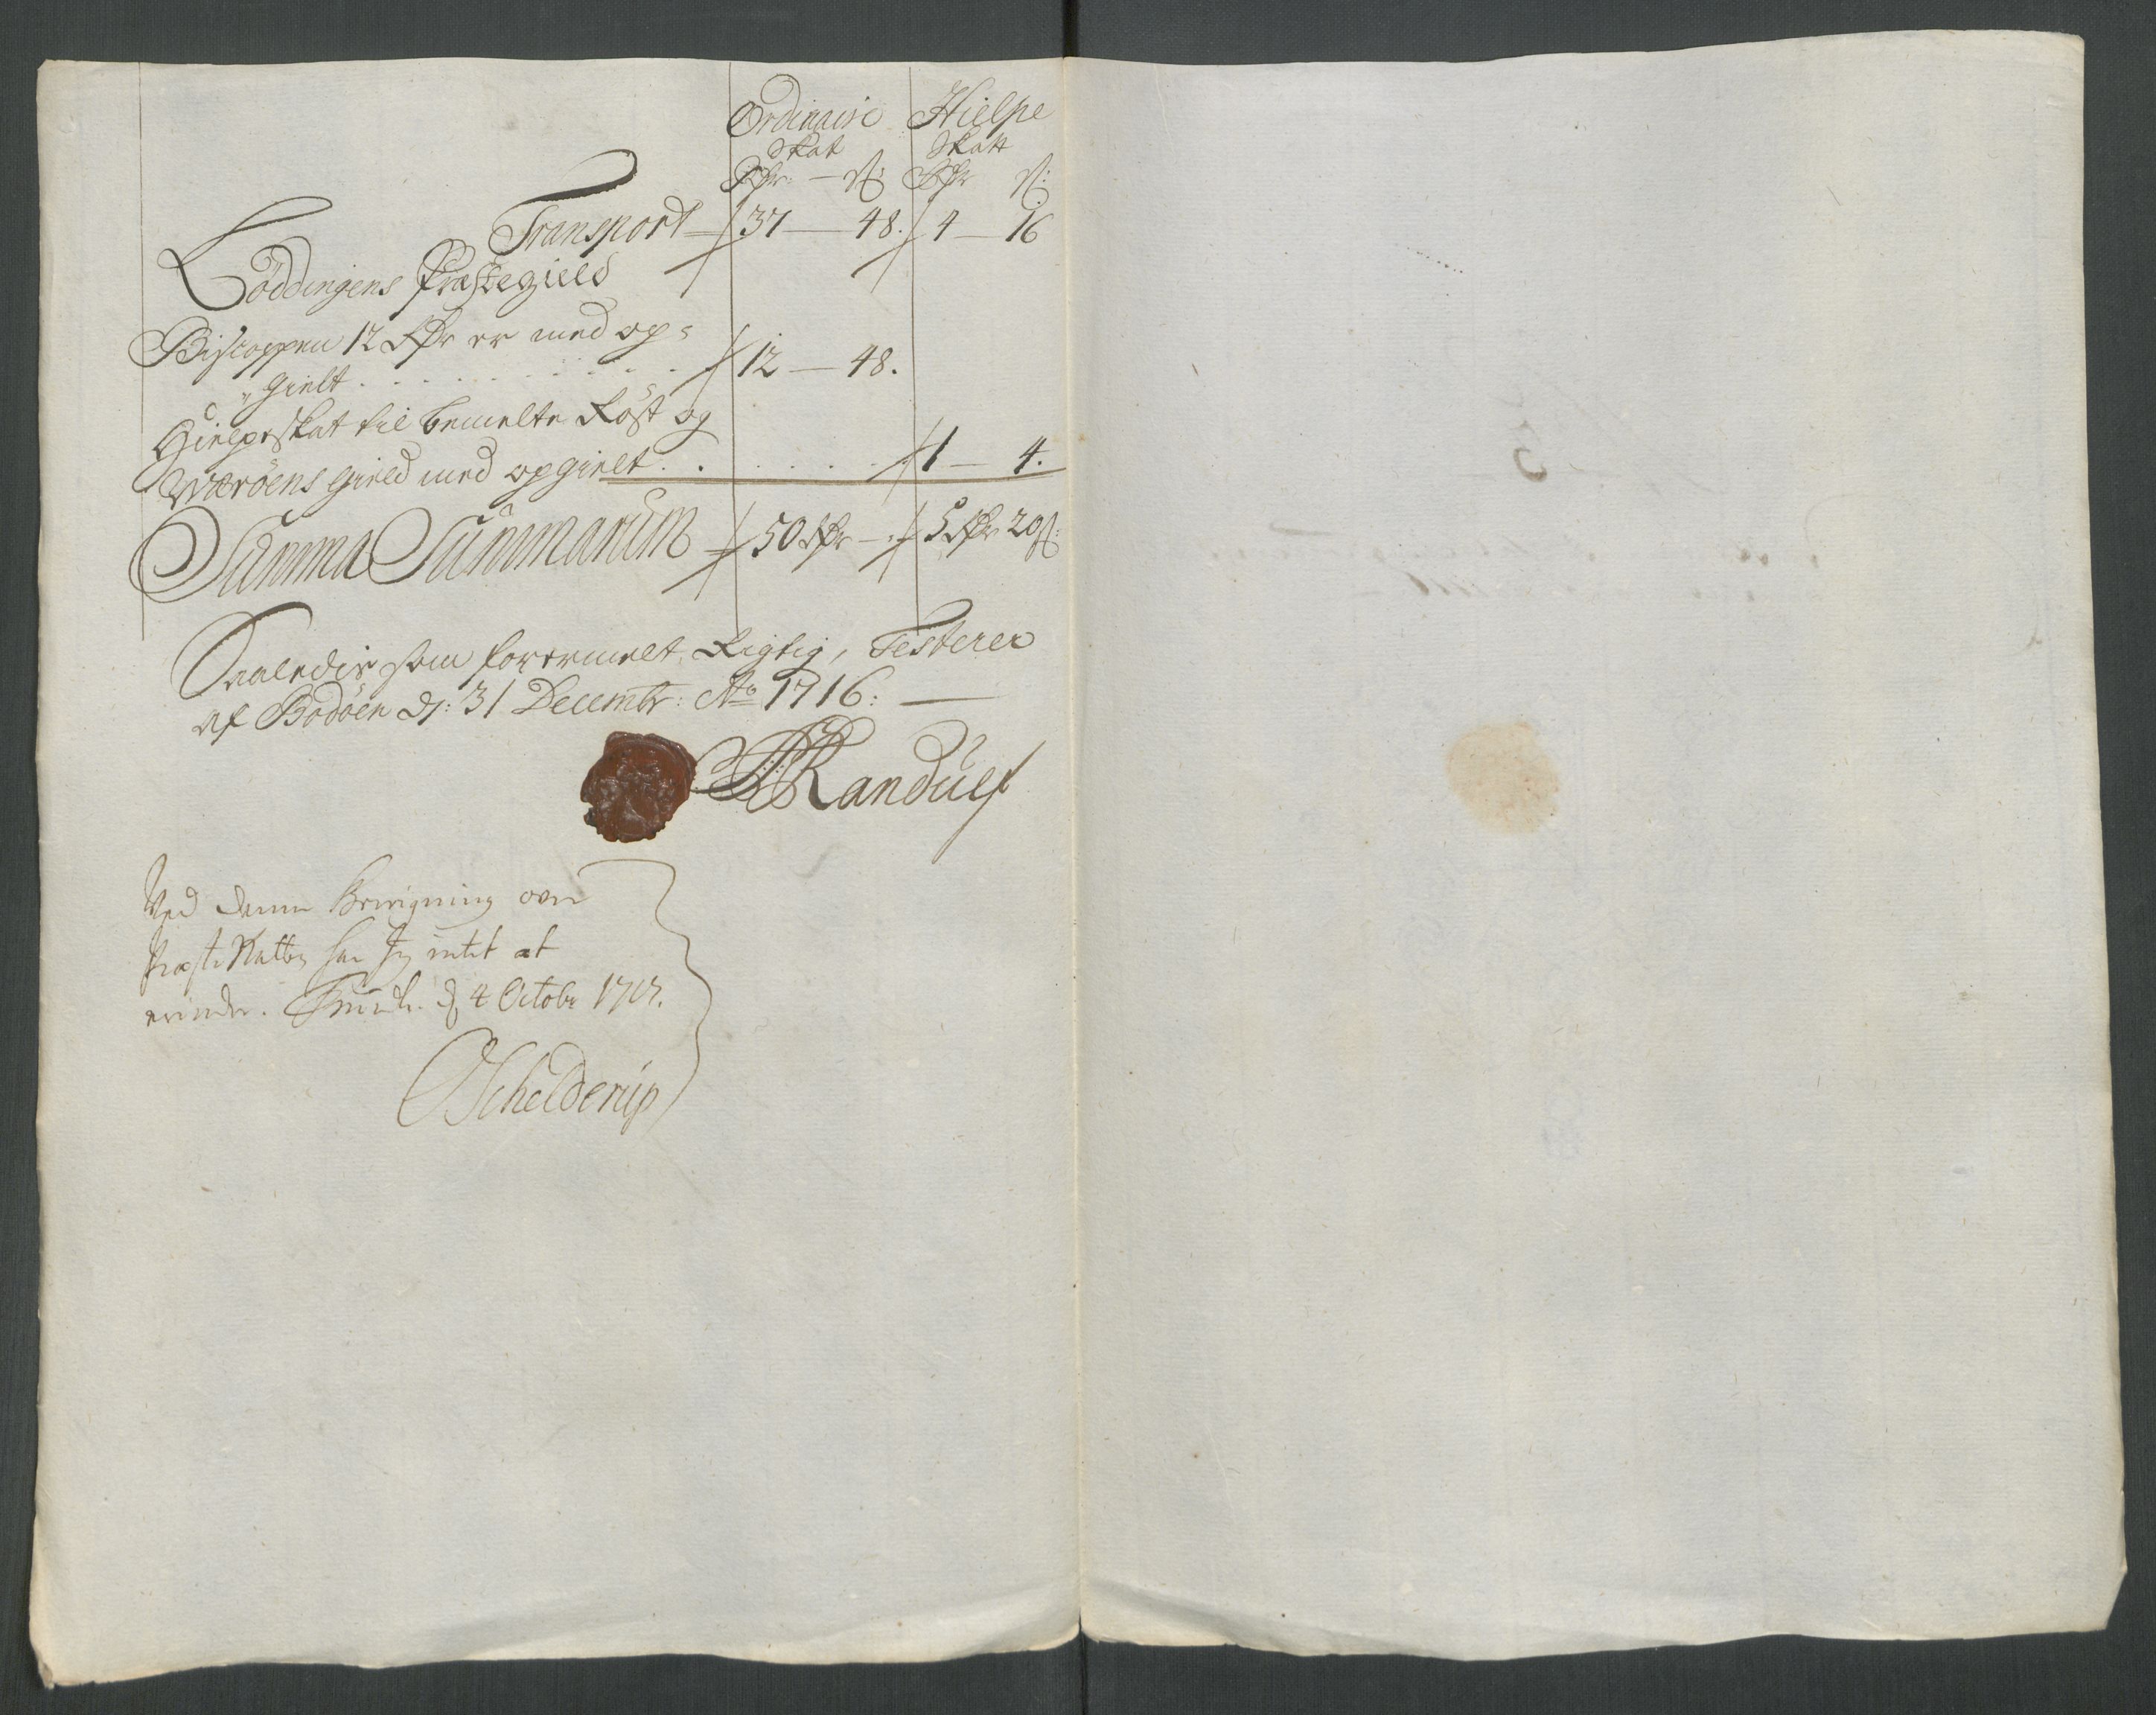 Ordinaire Hielpe
Skat Skatt
Rdr — ß Rdr ß:
Transport — 37 — 48. 4 — 16
Löddingens Præstegield
Biscoppen 12 Rdr er med op=
gielt . . . . . . . . . 12 — 48.
Hielpeskat til bemelte Röst og
Væröens gield med opgielt . . . . . . 1 — 4.
Summa Summarum — 50 Rdr — . 5 Rdr 20 ß:
Saaledis som forermelt Rigtig, Testerer
af Bodöen d: 31 Decembr: Ao 1716: —
Randulf
Ved denne Beregning over
Præste Skatten har Jeg intet at
erindre. d 4 Octobr 1717.
Schelderup